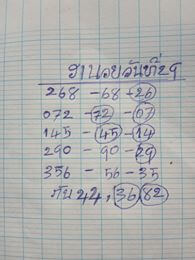 ฮานอยวันที่29
268 - 68 - 26
072 - 72 - 07
145 - 45 - 14
290 - 90 - 29
356 - 56 - 35
กัน 22, 36 82